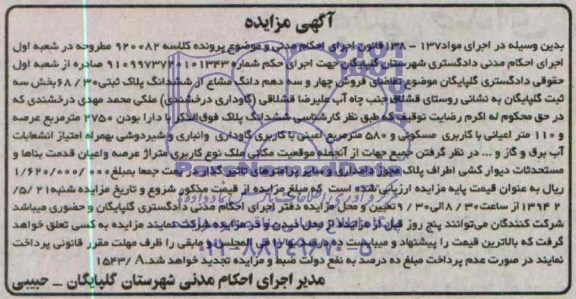 آگهی مزایده
بدین وسیله در اجرای مواد ۱۳۷ - ۱۳۸ قانون اجرای احکام مدنی و موضوع پرونده کلاسه ۹۲۰۰۸۲ مطروحه در شعبه اول
اجرای احکام مدنی دادگستری شهرستان گلپایگان جهت اجرای حکم شماره صادره از شعبه اول
حقوقی دادگستری گلپایگان موضوع تقاضای فروش چهار و سه دهم دانگ مشاع از ششدانگ پلاک ثبتی ۶۸/۳۰ بخش سه
ثبت گلپایگان به نشانی روستای قشلاق جنب چاه آب علیرضا قشلاقی (گاوداری درخشندی) ملکی محمد مهدی درخشندی که
در حق محکوم له اکرم رضایت توقیف که طبق نظر کارشناسی ششدانگ پلاک فوق الذکر با دارا بودن ۲۷۵۰ مترمربع عرصه
و ۱۱۰ متر اعیانی با کاربری مسکونی و ۵۸۰ مترمربع اعینی با کاربری گاوداری وانباری و شیردوشی بهمراه امتیاز انشعابات
آب برق و گاز و ... در نظر گرفتن جمیع جهات از آنجمله موقعیت مکانی ملک نوع کاربری متراژ عرصه واعیان قدمت بناها و
مستحدثات دیوار کشی اطراف پلاک مجوز دامداری و سایر پرامترهای تاثیر گذار در قیمت جمعا بمبلغ ۱/۶۲۰/۰۰۰/۰۰۰
ریال به عنوان قیمت پایه مزایده ارزیابی شده است. که مبلغ مزایده از قیمت مذکور شروع و تاریخ مزایده شنبه ۲۱/ ۵/
۱۳۹۴ از ساعت ۸/۳۰ الی ۹/۳۰ تعیین و محل مزایده دفتر اجرای احکام مدنی دادگستری گلپایگان و حضوری میباشد
شرکت کنندگان می‌توانند پنج روز قبل از مزایده از محل دیدن و در مزایده شرکت نمایند مزایده به کسی تعلق خواهد
گرفت که بالاترین قیمت را پیشنهاد و میبایست ده درصد بها را فی المجلس و مابقی را ظرف مهلت مقرر قانونی پرداخت
نمایند در صورت عدم پرداخت مبلغ ده درصد به نفع دولت ضبط و مزایده تجدید خواهد شد. ۱۵۴۳/ A
مدیر اجرای احکام مدنی شهرستان گلپایگان - حبیبی